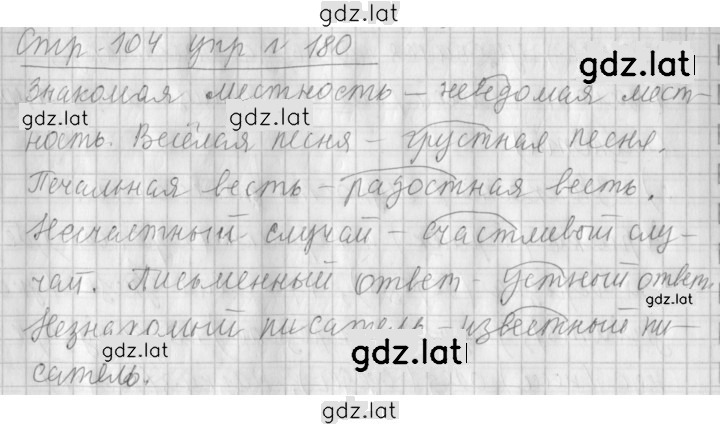 gdz.lat
Стр. 104 упр № 180
gdz.lat
Знакомая местность – неведомая мест-
gdz.lat gdz.lat
ность. Весёлая песня – грустная песня.
Печальная весть – радостная весть.
Несчастный случай – счастливый слу-
чай. Письменный ответ – устный ответ.
gdz.lat
Незнакомый писатель – известный пи-
gdz.lat gdz.lat
сатель.
gdz.lat